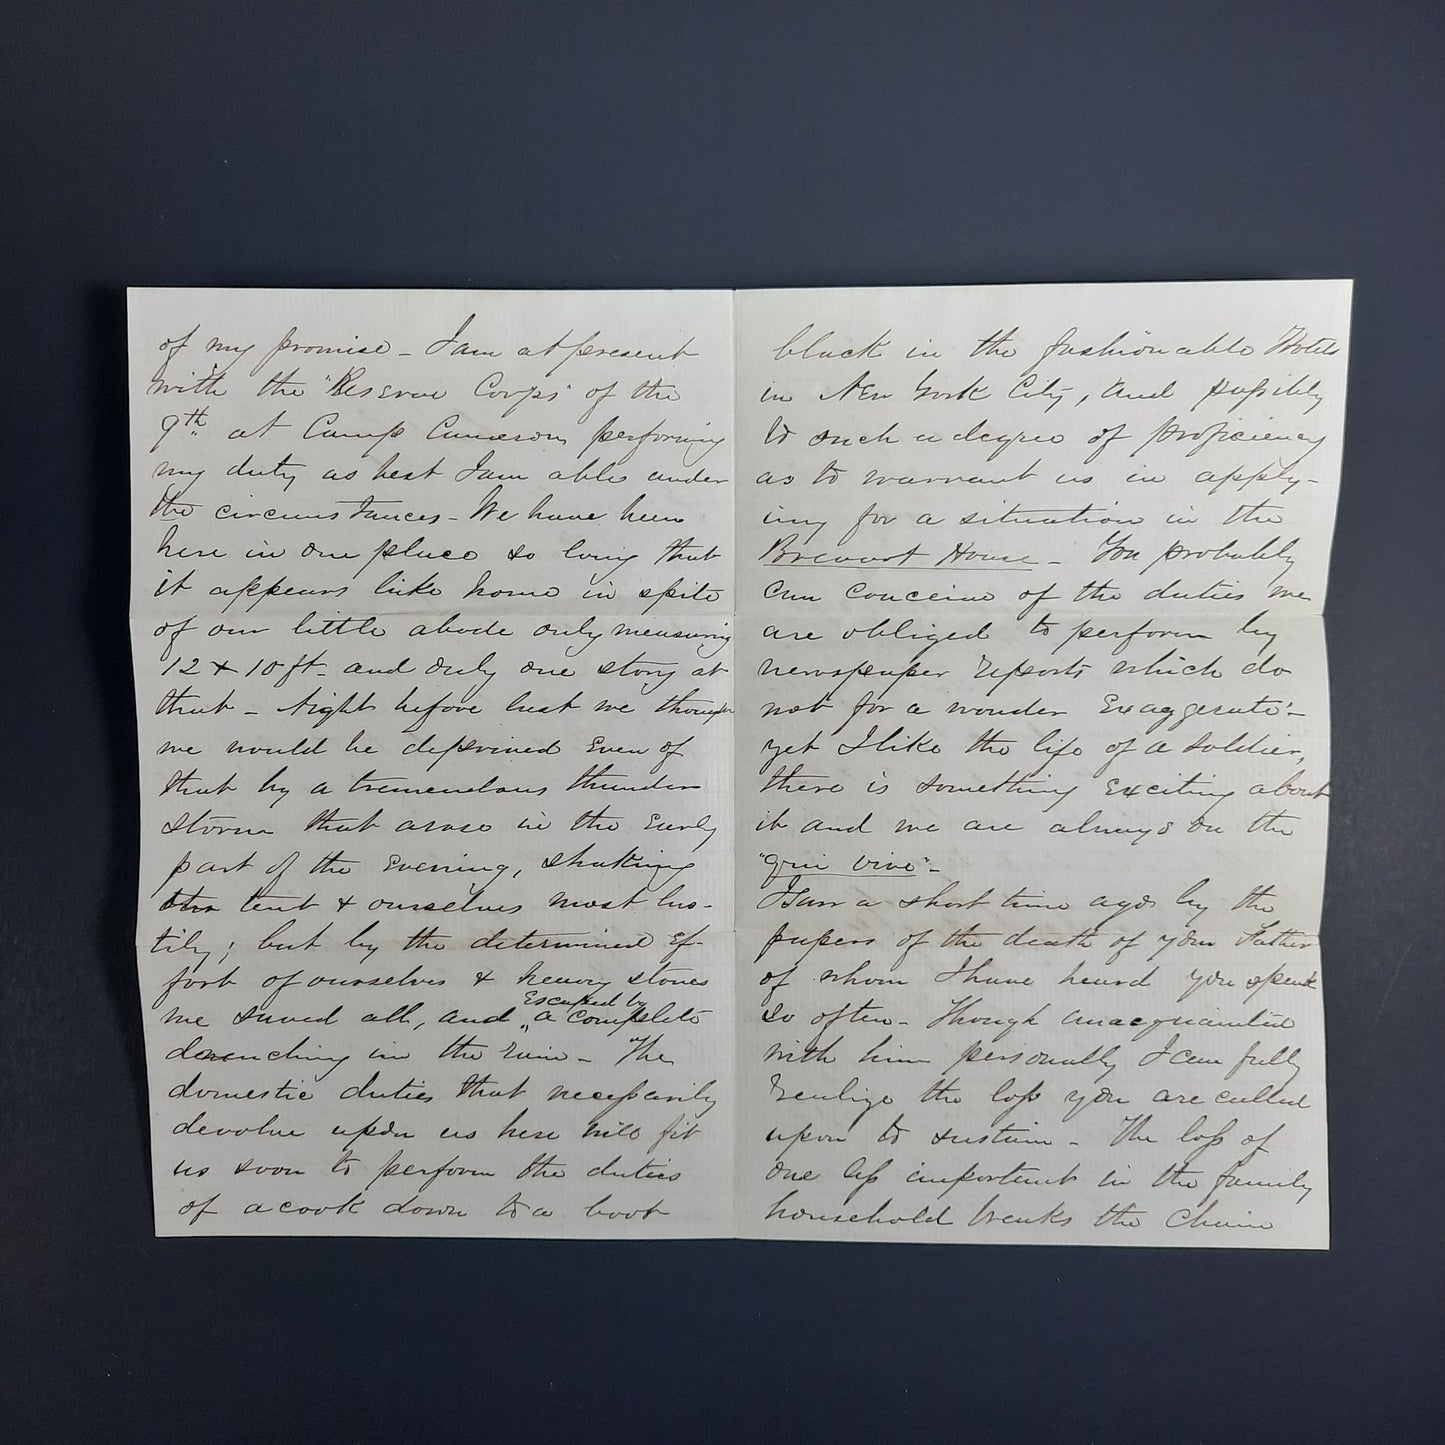 of my promise - I am at present
with the "Reserve Corps" of the
9th at Camp Cameron, performing
my duty as best I am able under
the circumstances - We have been
here in one place so long that
it appears like home in spite
of our little abode only measuring
12 x 10 ft - and only one story at
that - Night before last we thought
we would be deprived even of
that by a tremendous thunder
storm that arose in the early
part of the evening, shaking
the tent & ourselves most lus-
tily; but by the determined ef-
fort of ourselves & heavy stones
we saved all, and escaped by a complete
drenching in the rain - The
domestic duties that necessarily
devolve upon us here will fit
us soon to perform the duties
of a cook down to a boot
black in the fashionable Hotels
in New York City, and possibly
to such a degree of proficiency
as to warrant us in apply-
ing for a situation in the
Brevoort House - You probably
can conceive of the duties we
are obliged to perform by
newspaper reports which do
not for a wonder exaggerate -
yet I like the life of a soldier,
there is something exciting about
it and we are always on the
"qui vive" -
I saw a short time ago by the
papers of the death of your Father
of whom I have heard you speak
so often - Though unacquainted
with him personally I can fully
realize the loss you are called
upon to sustain - The loss of
one less important in the family
household breaks the chain